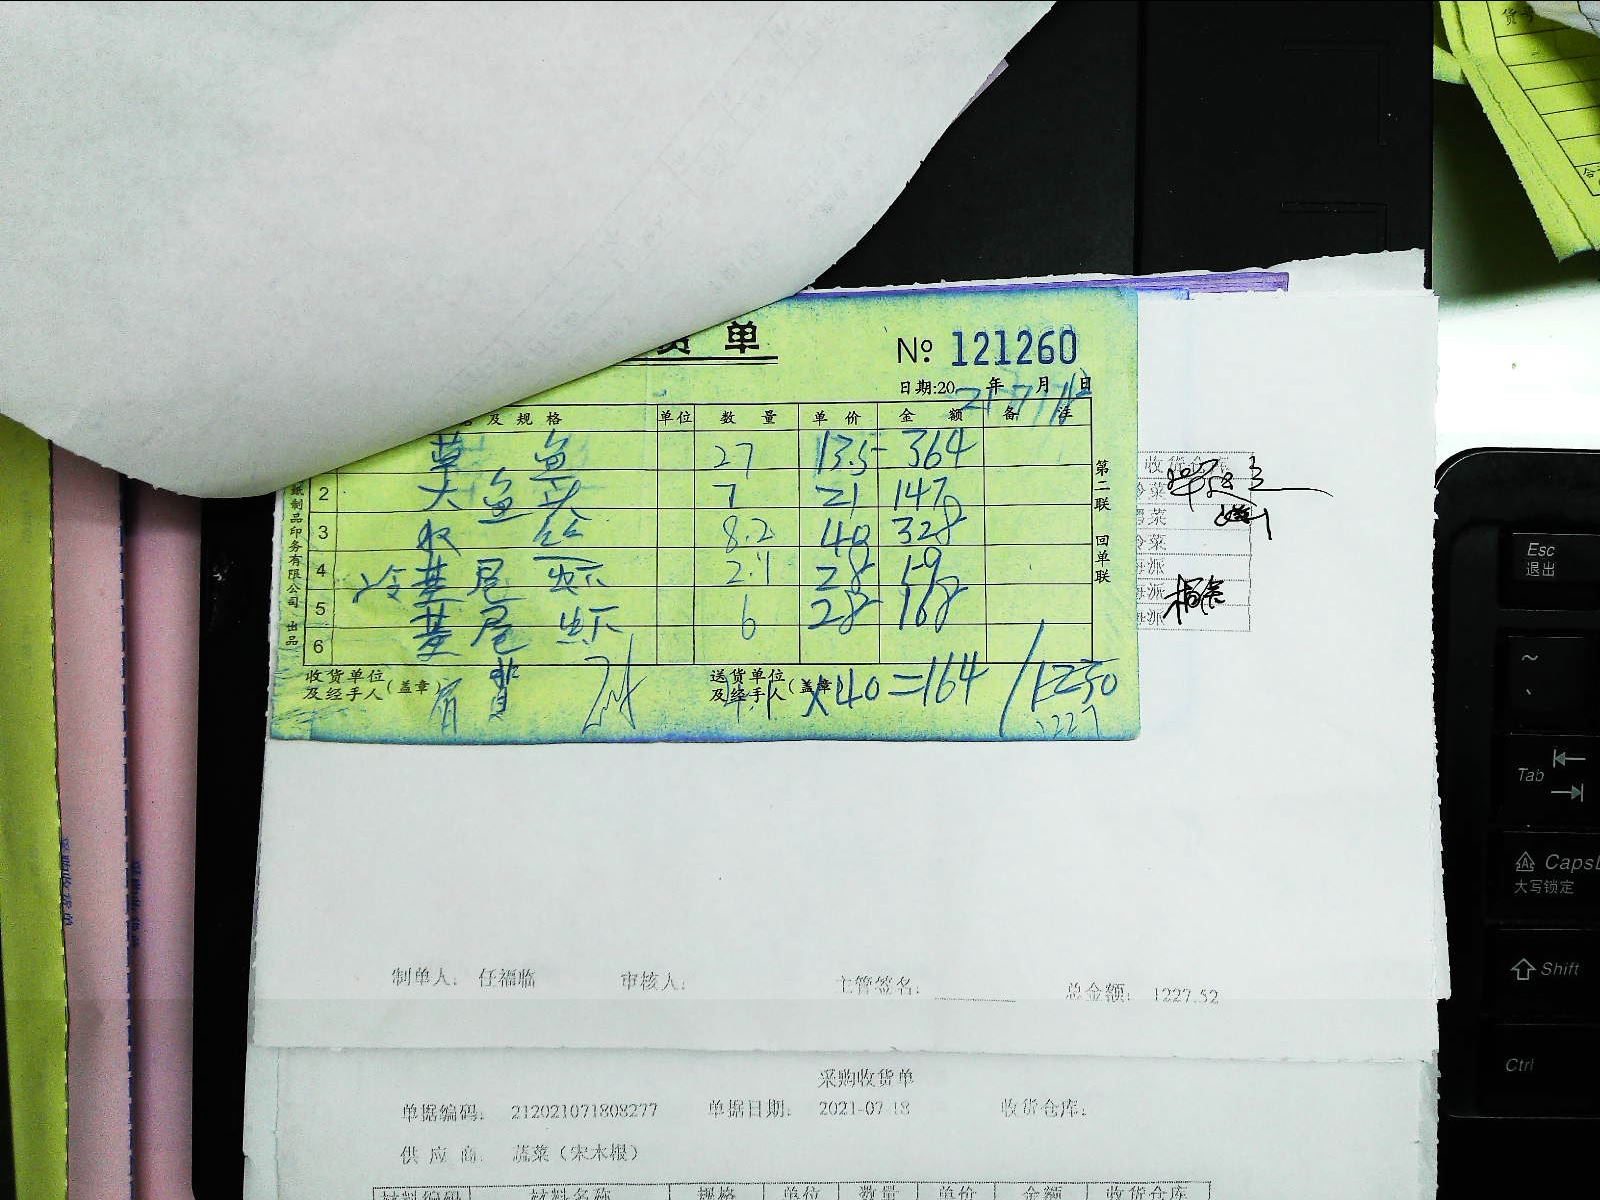 货单
№ 121260
日期:20 21 年 7 月 18 日
及规格 单位 数量 单价 金额 备注
草鱼 27 13.5 364
2 大鱼头 7 21 147
3 8.2 40 328
4 冷基尾虾 2.1 28 59
5 基尾虾 6 28 168
6
收货单位及经手人(盖章)
送货单位及经手人(盖章)
4.1×40=164 1230
1227
第二联 回单联
纸制品印务有限公司 出品
收货仓库
冷菜
冷菜
海派
海派
海派
制单人: 任福临 审核人: 主管签名: 总金额: 1227.52
采购收货单
单据编码: 212021071808277 单据日期: 2021-07-18 收货仓库:
供应商: 蔬菜(宋木根)
材料编码 材料名称 规格 单位 数量 单价 金额 收货仓库
Esc
退出
~
Tab
Caps
大写锁定
Shift
Ctrl